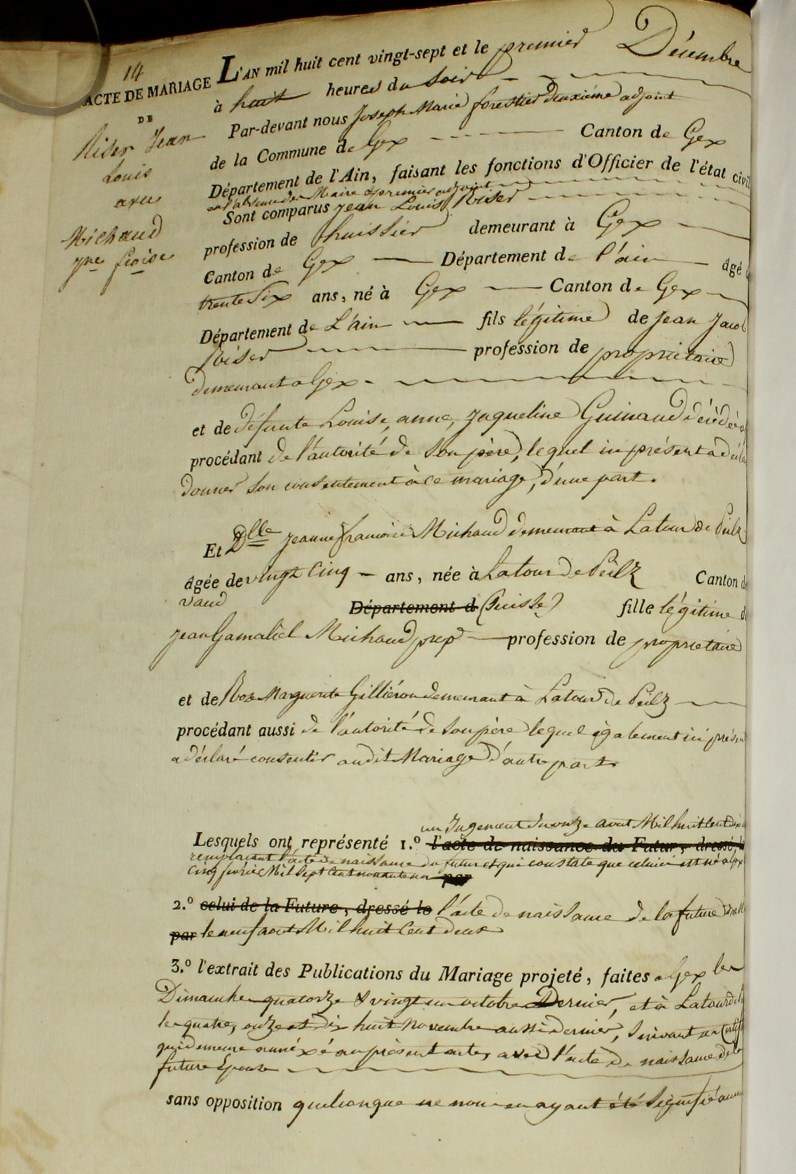 14
ACTE DE MARIAGE
DE
Riser Jean
Louis
avec
Michaud
jne fçoise
L'AN mil huit cent vingt-sept et le premier Décembre
à huit heures du soir
Par-devant nous Joseph Marie forestier deuxième adjoint
de la Commune de Gex Canton de Gex
Département de l'Ain, faisant les fonctions d'Officier de l'état civil
en l'absence du Maire & premier adjoint
Sont comparus Jean Louis Riser
profession de huissier demeurant à Gex
Canton de Gex Département de l'ain âgé
trente six ans, né à Gex Canton de Gex
Département de L'ain fils légitime de Jean Jacob
Riser profession de propriétaire
demeurant a Gex
et de défunte Louise, anne, Jaqueline Guinaud décédée
procédant de l'autorité de son père, lequel ici présent a déclaré
donner son consentement à ce mariage, d'une part.
Et Dlle Jeanne françoise Michaud demeurant à Latour de Peilz
âgée de vingt cinq ans, née à Latour de Peilz Canton de
vaud Département d (Suisse) fille légitime de
Jean Gamaliel Michaud profession de propriétaire
et de Roze Marguerite Gilliéron demeurant à Latour de Peilz
procédant aussi de l'autorité de son père lequel également ici présent
a déclaré consentir audit Mariage d'autre part.
un Jugement du onze avout Mil huit cent
Lesquels ont représenté 1.° l'acte de naissance du Futur, dressé, le
remplaçant l'acte de naissance du futur et qui constate que celui ci est né a Gex
cinq février Mil sept cent nonante un par
2.° celui de la Future, dressé le l'acte de naissance de la future
par le neuf avout Mil huit cent deux
3.° l'extrait des Publications du Mariage projeté, faites a Gex les
Dimanche quatorze & vingt un octobre Dernier, et à Latour de
le quatre, onze et dix huit novembre aussi dernier, suivant un
qui demeure annéxé au présent acte, avec l'acte de naissance de la
future Epouse
sans opposition quelconque ne nous en ayant été signifié aucune